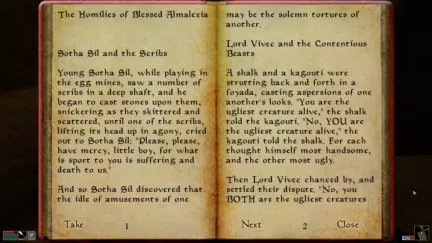 The Homilies of Blessed Almalexia
Sotha Sil and the Scribs
Young Sotha Sil, while playing in
the egg mines, saw a number of
scribs in a deep shaft, and he
began to cast stones upon them,
snickering as they skittered and
scattered, until one of the scribs,
lifting its head up in agony, cried
out to Sotha Sil: "Please, please,
have mercy, little boy, for what
is sport to you is suffering and
death to us."
And so Sotha Sil discovered that
the idle amusements of one
Take
1
may be the solemn tortures of
another.
Lord Vivec and the Contentious
Beasts
A shalk and a kagouti were
strutting back and forth in a
foyada, casting aspersions of one
another's looks. "You are the
ugliest creature alive," the shalk
told the kagouti. "No, YOU are
the ugliest creature alive," the
kagouti told the shalk. For each
thought himself most handsome,
and the other most ugly.
Then Lord Vivec chanced by, and
settled their dispute. "No, you
BOTH are the ugliest creatures
Next
2
Close